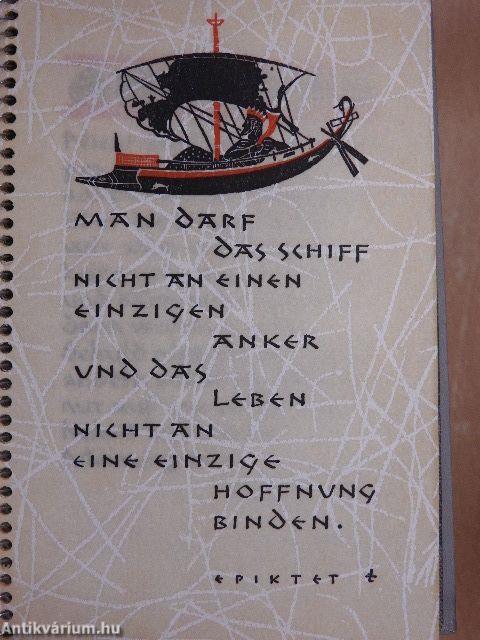 MAN DARF
DAS SCHIFF
NICHT AN EINEN
EINZIGEN
ANKER
UND DAS
LEBEN
NICHT AN
EINE EINZIGE
HOFFNUNG
BINDEN.
EPIKTET
Antikvárium.hu